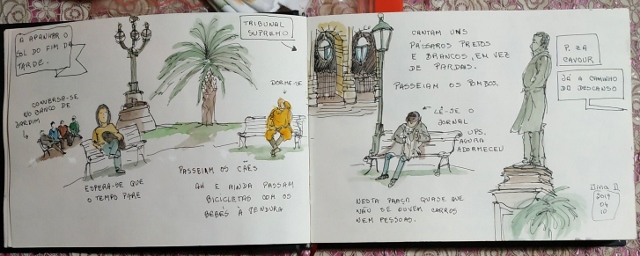 A APANHAR O
SOL DO FIM DA
TARDE.
TRIBUNAL
SUPREMO
CONVERSA-SE
NO BANCO DE
JARDIM
DORME-SE
ESPERA-SE QUE
O TEMPO PARE
PASSEIAM OS CÃES
AH E AINDA PASSAM
BICICLETAS COM OS
BEBÉS À PENDURA
CANTAM UNS
PÁSSAROS PRETOS
E BRANCOS, EM VEZ
DE PARDAIS.
PASSEIAM OS POMBOS.
LÊ-SE O
JORNAL
UPS,
AGORA
ADORMECEU
NESTA PRAÇA QUASE QUE
NÃO SE OUVEM CARROS
NEM PESSOAS.
P.ZA
CAVOUR
JÁ A CAMINHO
DO DESCANSO
2019
04
10